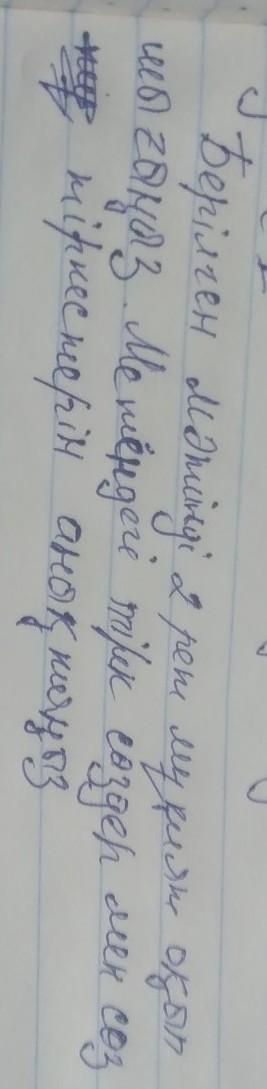 Берілген мәтінді 2 рет мұқият оқып
шығыңыз. Мәтіндегі тірек сөздер мен сөз
тіркестерін анықтаңыз